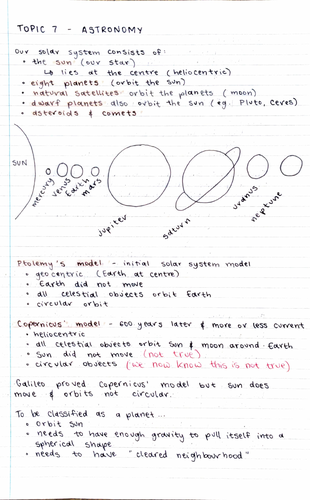 TOPIC 7 - ASTRONOMY
Our solar system consists of:
• the sun (our star)
↳ lies at the centre (heliocentric)
• eight planets (orbit the sun)
• natural satellites orbit the planets (moon)
• dwarf planets also orbit the sun (eg. Pluto, Ceres)
• asteroids & comets
SUN
mercury
venus
Earth
mars
jupiter
saturn
uranus
neptune
Ptolemy's model - initial solar system model
• geocentric (Earth at centre)
• Earth did not move
• all celestial objects orbit Earth
• circular orbit
Copernicus' model - 600 years later & more or less current
• heliocentric
• all celestial objects orbit sun & moon around Earth
• Sun did not move (not true)
• circular objects (we now know this is not true)
Galileo proved Copernicus' model but sun does
move & orbits not circular.
To be classified as a planet...
• Orbit Sun
• needs to have enough gravity to pull itself into a
spherical shape
• needs to have "cleared neighbourhood"